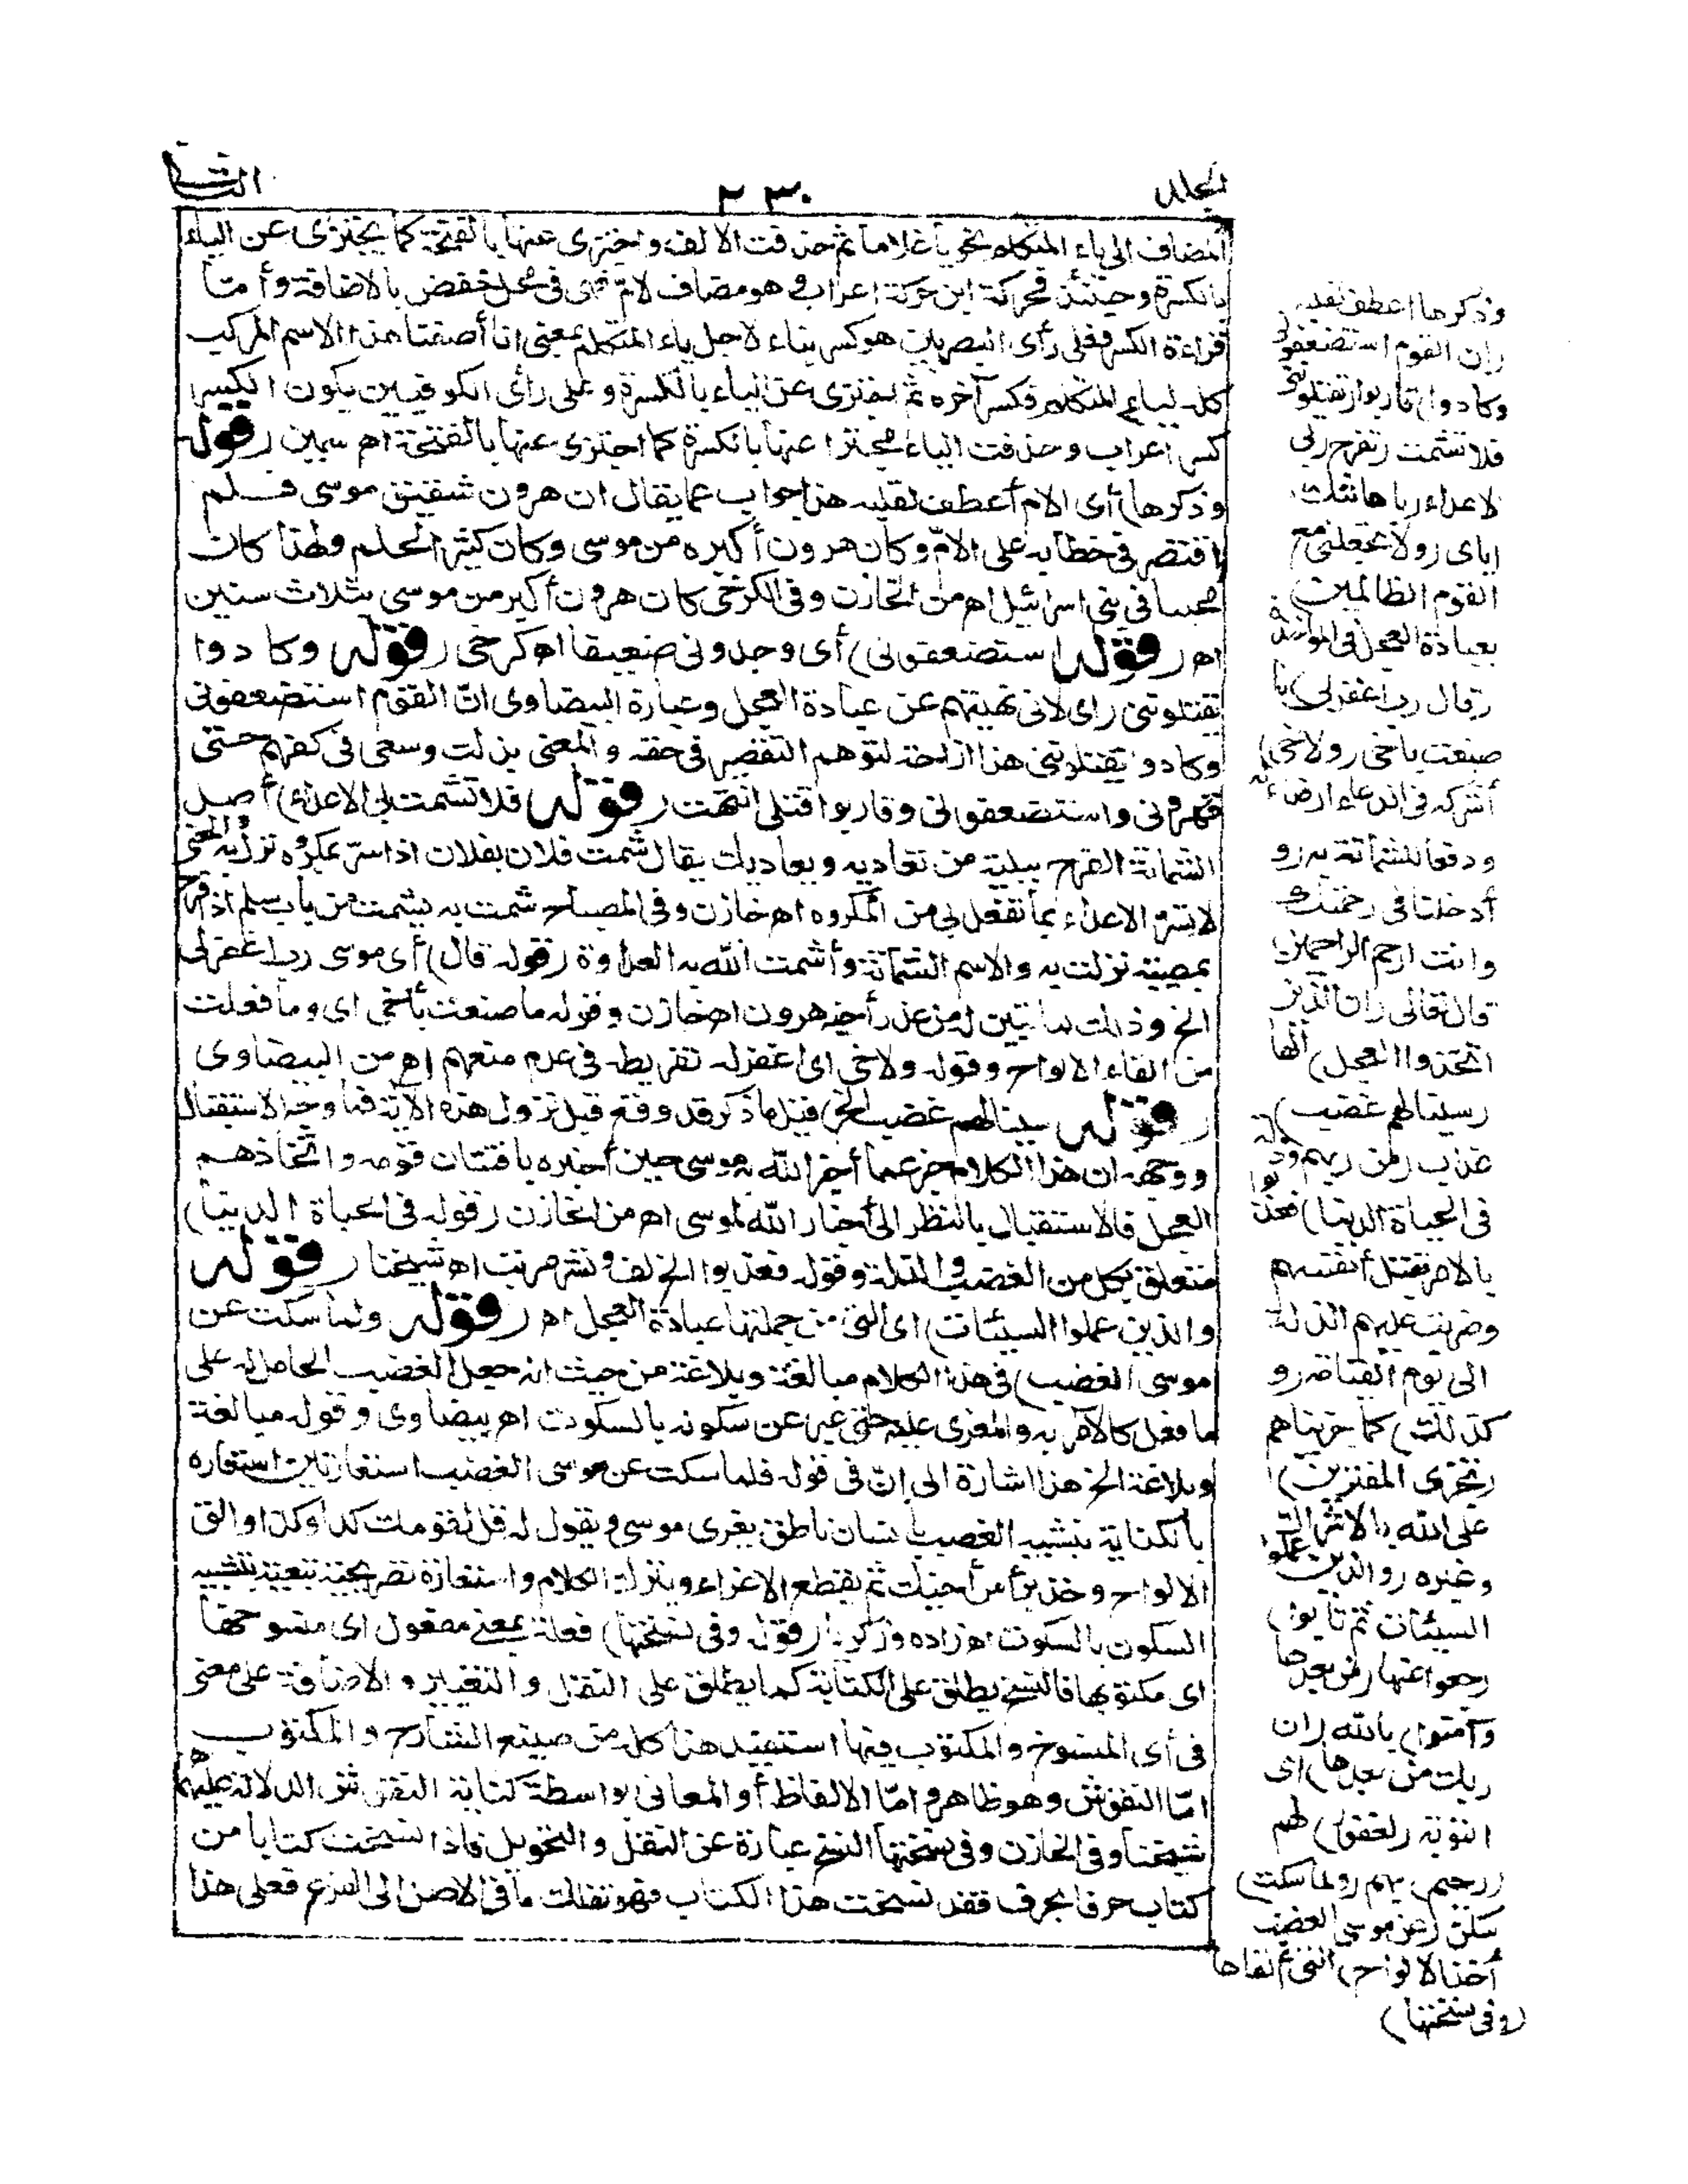 المجلد
٢٣٠
الثانى
المضاف الى ياء المتكلم نحو يا غلاما ثم حذفت الالف واجتزى عنها بالفتحة كما يجتزى عن الياء
بالكسرة وحينئذ فحركة ابن حركة اعراب وهو مضاف لامّ فهى فى محل خفض بالاضافة وأمّا
قراءة الكسر فعلى رأى البصريين هو كسر بناء لاجل ياء المتكلم بمعنى انا أضفنا هذا الاسم المركب
كله لياء المتكلم فكسر آخره ثم اجتزى عن الياء بالكسرة وعلى رأى الكوفيين يكون الكسر
كسر اعراب وحذفت الياء مجتزأ عنها بالكسرة كما اجتزى عنها بالفتحة اهـ سمين (قوله
وذكرها) أى الام أعطف لقلبه هذا جواب عما يقال ان هرون شقيق موسى فلم
اقتصر فى خطابه على الامّ وكان هرون أكبره من موسى وكان كثير الحلم ولهذا كان
محببا فى بنى اسرائيل اهـ من الخازن وفى الكرخى كان هرون أكبر من موسى بثلاث سنين
اهـ (قوله استضعفونى) أى وجدونى ضعيفا اهـ كرخى (قوله وكادوا
يقتلوننى) أى لانى نهيتهم عن عبادة العجل وعبارة البيضاوى انّ القوم استضعفونى
وكادوا يقتلوننى هذا ازاحة لتوهم التقصير فى حقه والمعنى بذلت وسعى فى كفهم حتى
قهرونى واستضعفونى وقاربوا قتلى انتهت (قوله فلا تشمت بى الاعداء) أصل
الشماتة الفرح ببلية من تعاديه ويعاديك يقال شمت فلان بفلان اذا سرّ بمكروه نزل به والمعنى
لا تسرّ الاعداء بما تفعل بى من المكروه اهـ خازن وفى المصباح شمت به يشمت من باب سلم اذا فرح
بمصيبة نزلت به والاسم الشماتة وأشمت الله به العدو اهـ (قوله قال) أى موسى رب اغفر لى
الخ وذلك لما تبين له من عذر أخيه هرون اهـ خازن وقوله ما صنعت بأخى اى وما فعلت
من القاء الالواح وقوله ولاخى اى اغفر له تفريطه فى عدم منعهم اهـ من البيضاوى
(قوله سينالهم غضب الخ) قيل ما ذكر قد وقع قبل نزول هذه الآية فما وجه الاستقبال
ووجهه ان هذا الكلام خبر عما أخبر الله به موسى حين أخبره بافتتان قومه واتخاذهم
العجل فالاستقبال بالنظر الى أخبار الله لموسى اهـ من الخازن (قوله فى الحياة الدنيا)
متعلق بكل من الغضب والذلة وقوله فعذبوا الخ لف ونشر مرتب اهـ شيخنا (قوله
والذين عملوا السيئات) اى التى من جملتها عبادة العجل اهـ (قوله ولما سكت عن
موسى الغضب) فى هذا الكلام مبالغة وبلاغة من حيث انه جعل الغضب الحامل له على
ما فعل كالآمر به والمغرى عليه حتى عبر عن سكونه بالسكوت اهـ بيضاوى وقوله مبالغة
وبلاغة الخ هذا اشارة الى انّ فى قوله فلما سكت عن موسى الغضب استعارتين استعارة
بالكناية بتشبيه الغضب بانسان ناطق يغرى موسى ويقول له قل لقومك كذا وكذا وألق
الالواح وخذ برأس أخيك ثم يقطع الاغراء ويترك الكلام واستعارة تصريحية تبعية بتشبيه
السكون بالسكوت اهـ زاده وزكريا (قوله وفى نسختها) فعلة بمعنى مفعول اى منسوخها
اى مكتوبها فالنسخ يطلق على الكتابة كما يطلق على النقل والتغيير والاضافة على معنى
فى أى المنسوخ والمكتوب فيها استفيد هذا كله من صنيع الشارح والمكتوب
امّا النقوش وهو ظاهر وامّا الالفاظ أو المعانى بواسطة كتابة النقوش الدالة عليها اهـ
شيخنا وفى الخازن وفى نسختها النسخ عبارة عن النقل والتحويل فاذا نسخت كتابا من
كتاب حرفا بحرف فقد نسخت هذا الكتاب فهو نقلك ما فى الاصل الى الفرع فعلى هذا
وذكرها اعطف لقلبه
(ان القوم استضعفونى
وكادوا) قاربوا (يقتلوننى
فلا تشمت) تفرح (بى
الاعداء) باهانتك
اياى (ولا تجعلنى مع
القوم الظالمين)
بعبادة العجل فى المؤاخذة
(قال رب اغفر لى) ما
صنعت باخى (ولاخى)
أشركه فى الدعاء ارضاء له
ودفعا للشماتة به (و
أدخلنا فى رحمتك
وانت ارحم الراحمين)
قال تعالى (ان الذين
اتخذوا العجل) الها
(سينالهم غضب)
عذاب (من ربهم وذلة
فى الحياة الدنيا) فعذبوا
بالامر بقتل أنفسهم
وضربت عليهم الذلة
الى يوم القيامة (و
كذلك) كما جزيناهم
(نجزى المفترين)
على الله بالاشراك
وغيره (والذين عملوا
السيئات ثم تابوا)
رجعوا عنها (من بعدها
وآمنوا) بالله (ان
ربك من بعدها) اى
التوبة (لغفور) لهم
(رحيم) بهم (ولما سكت)
سكن (عن موسى الغضب
أخذ الالواح) التى ألقاها
(وفى نسختها)